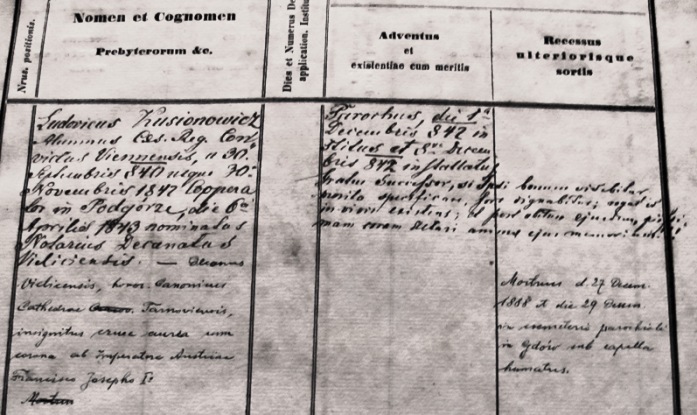 Nrus. positionis.
Nomen et Cognomen
Presbyterorum &c.
Dies et Numerus De
application. Institu
Adventus
et
existentiae cum meritis
Recessus
ulteriorisque
sortis
Ludovicus Kusionowicz
Alumnus Cæs. Reg. Con
victus Viennensis, a 30ª
Septembris 840 usque 30ª
Novembris 1842 Coopera
tor in Podgórze, die 6ª
Aprilis 1843 nominatus
Notarius Decanatus
Vieliciensis. — Decanus
Vieliciensis, honor. Canonicus
Cathedrae Tarnoviensis,
insignitus cruce aurea cum
corona ab Imperatore Austriae
Francisco Josepho I°
Mortuus
Parochus, die 1ª
Decembris 842 in
stitus et 8va Decem
bris 842 installatus
Gratus Successor, si
in vivis existens; post obitum ejusdem
Mortuus d. 27 Decem.
1888 et die 29 Decem.
in cemeterio parochiali
in Gdów sub capella
humatus.